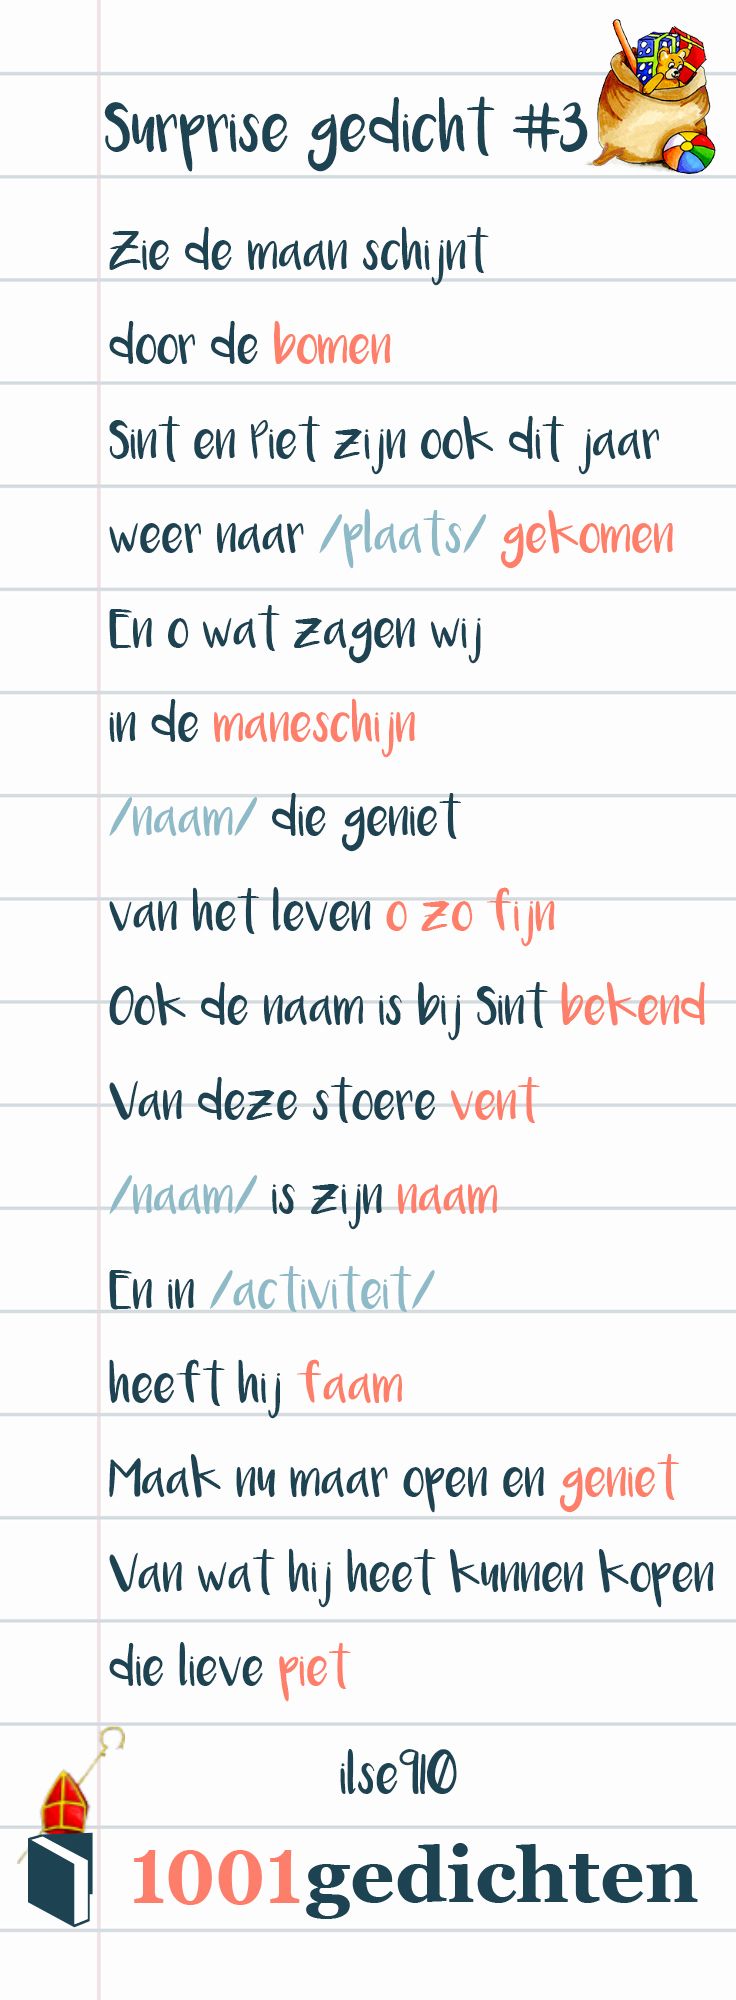 Surprise gedicht #3
Zie de maan schijnt
door de bomen
Sint en Piet zijn ook dit jaar
weer naar /plaats/ gekomen
En o wat zagen wij
in de maneschijn
/naam/ die geniet
van het leven o zo fijn
Ook de naam is bij Sint bekend
Van deze stoere vent
/naam/ is zijn naam
En in /activiteit/
heeft hij faam
Maak nu maar open en geniet
Van wat hij heet kunnen kopen
die lieve piet
ilse910
1001gedichten